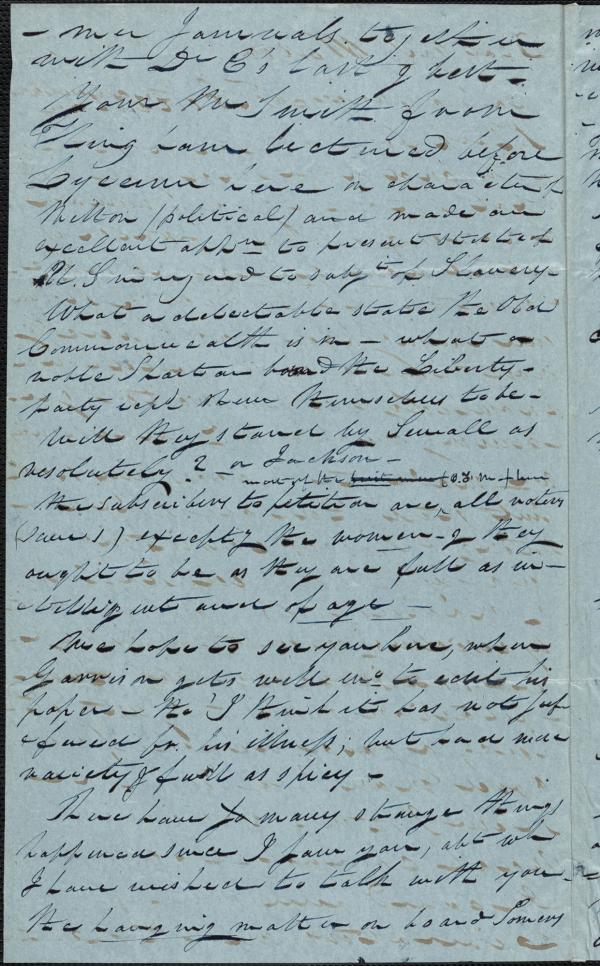 - mer Journals. together
with Dr C's last & best.
Your Mr Smith from
have lectured before
Lyceum here on character of
Milton (political) and made an
excellent appn to present state of
U.S in regard to subjt of Slavery.
What a delectable state the Old
Commonwealth is in - what a
noble Spartan band the Liberty-
party themselves to be -
will they stand by Sewall as
resolutely? - or Jackson -
the subscribers to petition are, all voters
(save 1) except g the women - & they
ought to be as they are full as in-
-telligent and of age -
We hope to see you here, when
Garrison gets well eno to edit his
paper - tho' I think it has not suf
-fered fr. his illness; but had more
variety & full as spicy -
There have so many strange things
happened since I saw you, abt wh
I have wished to talk with you -
the hanging matter on board Somers